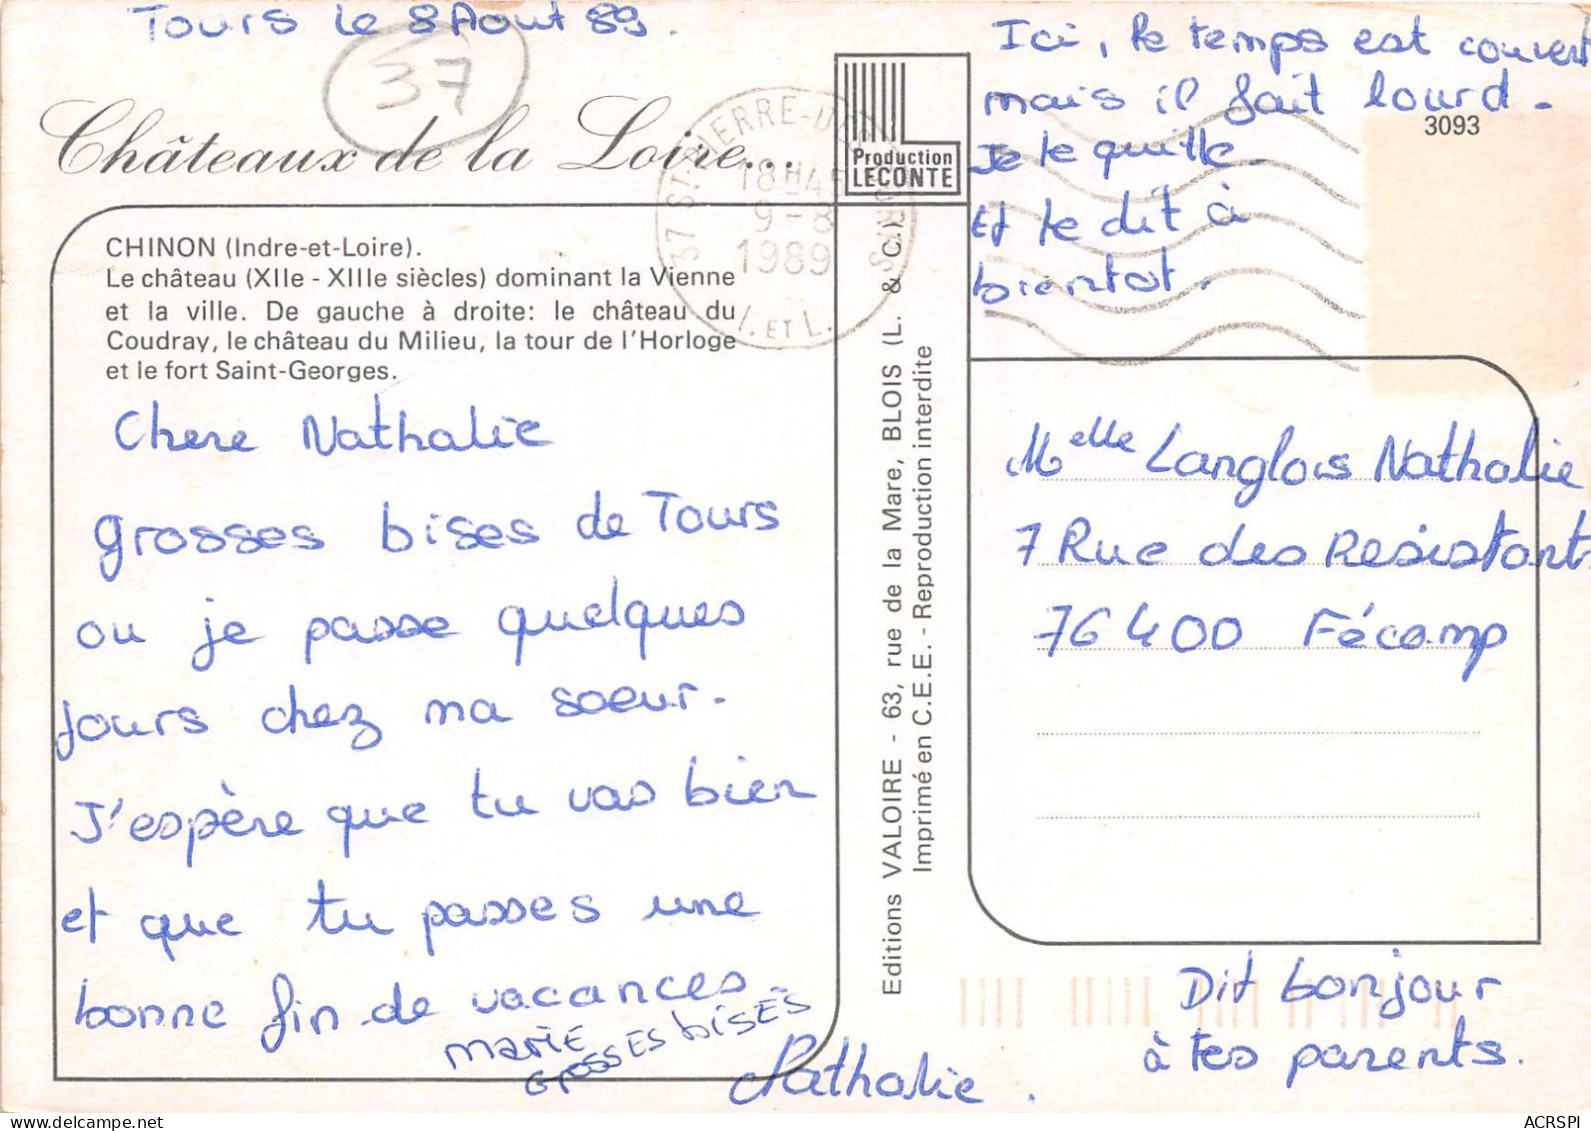 Tours le 8 Aout 89.
37
Châteaux de la Loire...
CHINON (Indre-et-Loire).
Le château (XIIe - XIIIe siècles) dominant la Vienne
et la ville. De gauche à droite: le château du
Coudray, le château du Milieu, la tour de l'Horloge
et le fort Saint-Georges.
Chere Nathalie
grosses bises de Tours
ou je passe quelques
jours chez ma soeur.
J'espère que tu vas bien
et que tu passes une
bonne fin de vacances.
MARIE
GROSSES BISES
Nathalie.
Production
LECONTE
37 ST-PIERRE-DES-CORPS
18H45
9-8
1989
I. ET L.
Editions VALOIRE - 63, rue de la Mare, BLOIS (L. & C.)
Imprimé en C.E.E. - Reproduction interdite
Ici, le temps est couvert
mais il fait lourd.
3093
Je te quitte.
Et te dit à
bientot.
Melle Langlois Nathalie
7 Rue des Resistants
76400 Fécamp
Dit bonjour
à tes parents.
ACRSPI